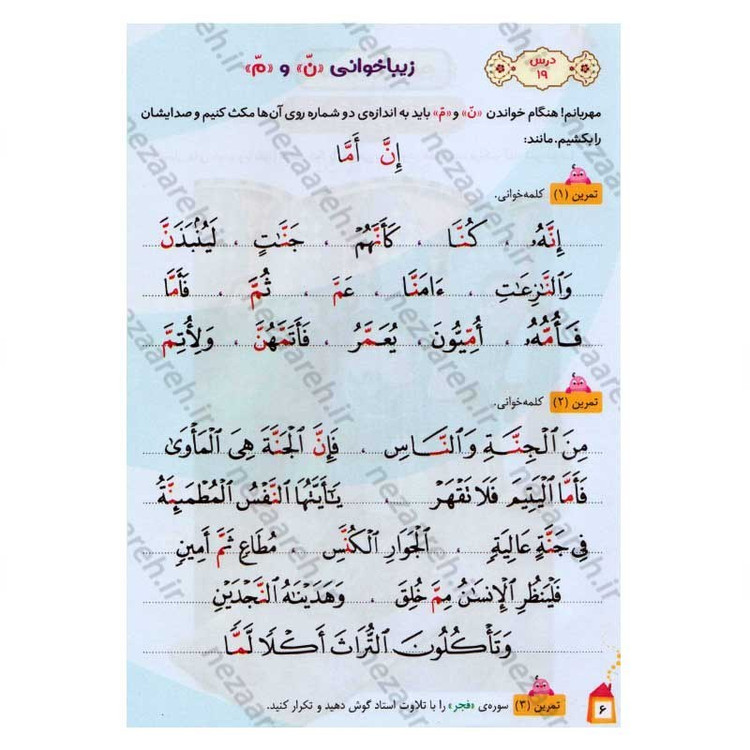 درس ۱۹
زیباخوانی «نّ» و «مّ»
مهربانم! هنگام خواندن «نّ» و «مّ» باید به اندازه‌ی دو شماره روی آن‌ها مکث کنیم و صدایشان
را بکشیم. مانند:
إِنَّ أَمَّا
تمرین (۱) کلمه‌خوانی.
إِنَّهُۥ ، كُنَّا ، كَأَنَّهُمۡ ، جَنَّـٰتٍ ، لَيُنۢبَذَنَّ
وَٱلنَّـٰزِعَـٰتِ ، ءَامَنَّا ، عَمَّ ، ثُمَّ ، فَأَمَّا
فَأُمُّهُۥ ، أُمِّيُّونَ ، يُعَمَّرُ ، فَأَتَمَّهُنَّ ، وَلِأُتِمَّ
تمرین (۲) کلمه‌خوانی.
مِنَ ٱلۡجِنَّةِ وَٱلنَّاسِ ، فَإِنَّ ٱلۡجَنَّةَ هِىَ ٱلۡمَأۡوَىٰ
فَأَمَّا ٱلۡيَتِيمَ فَلَا تَقۡهَرۡ ، يَـٰٓأَيَّتُهَا ٱلنَّفۡسُ ٱلۡمُطۡمَئِنَّةُ
فِى جَنَّةٍ عَالِيَةٍ ، ٱلۡجَوَارِ ٱلۡكُنَّسِ ، مُطَاعٍ ثَمَّ أَمِينٍ
فَلۡيَنظُرِ ٱلۡإِنسَـٰنُ مِمَّ خُلِقَ ، وَهَدَيۡنَـٰهُ ٱلنَّجۡدَيۡنِ
وَتَأۡكُلُونَ ٱلتُّرَاثَ أَكۡلًا لَّمًّا
تمرین (۳) سوره‌ی «فجر» را با تلاوت استاد گوش دهید و تکرار کنید.
۶
nezaareh.ir